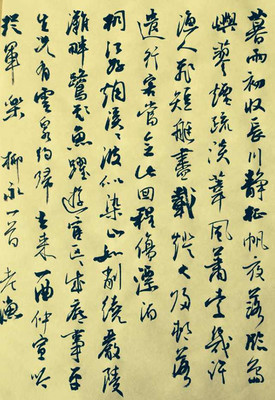 暮雨初收長川靜征帆夜落臨島
嶼蓼煙疏淡葦風蕭索幾許
漁人飛短艇盡載燈火歸村落
遣行客當念此回程傷漂泊
桐江好煙漠漠波似染山如削繞嚴陵
灘畔鷺飛魚躍遊宦區區成底事平
生况有雲泉約歸去來一曲仲宣吟
從軍樂 柳永一首 老漁